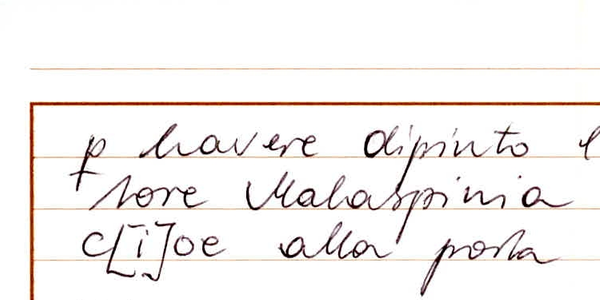 ꝑ havere dipinto
tore Malaspinia
c[i]oe alla porta